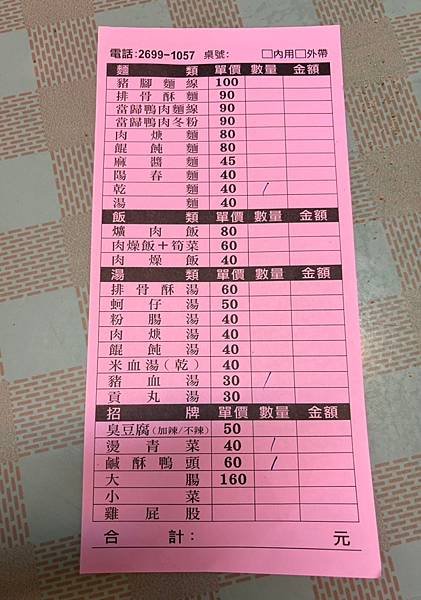 電話:2699-1057 桌號: □內用□外帶
麵類 單價 數量 金額
豬腳麵線 100
排骨酥麵 90
當歸鴨肉麵線 90
當歸鴨肉冬粉 90
肉焿麵 80
餛飩麵 80
麻醬麵 45
陽春麵 40
乾麵 40 /
湯麵 40
飯類 單價 數量 金額
爌肉飯 80
肉燥飯+筍菜 60
肉燥飯 40
湯類 單價 數量 金額
排骨酥湯 60
蚵仔湯 50
粉腸湯 40
肉焿湯 40
餛飩湯 40
米血湯(乾) 40
豬血湯 30 /
貢丸湯 30
招牌 單價 數量 金額
臭豆腐(加辣/不辣) 50
燙青菜 40 /
鹹酥鴨頭 60 /
大腸 160
小菜
雞屁股
合計: 元